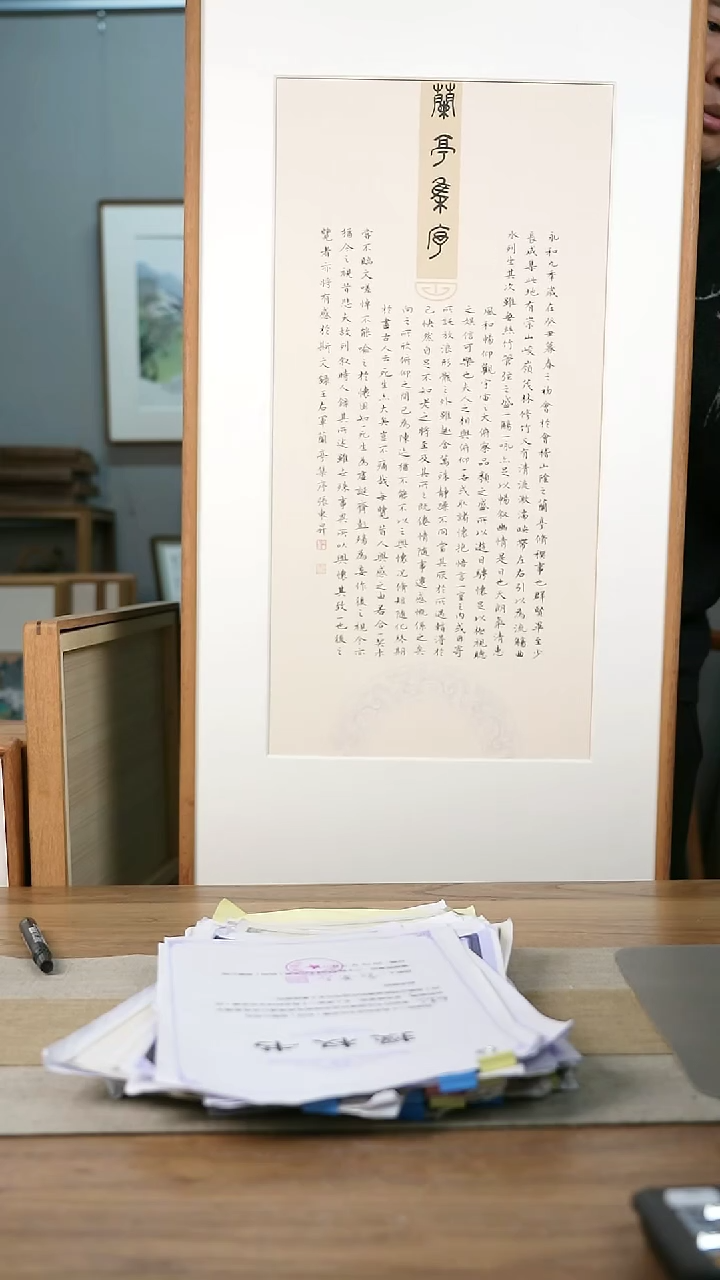 蘭亭集序
永和九年歲在癸丑暮春之初會於會稽山陰之蘭亭脩禊事也群賢畢至少
長咸集此地有崇山峻嶺茂林修竹又有清流激湍映帶左右引以為流觴曲
水列坐其次雖無絲竹管弦之盛一觴一詠亦足以暢敘幽情是日也天朗氣清惠
風和暢仰觀宇宙之大俯察品類之盛所以遊目騁懷足以極視聽
之娛信可樂也夫人之相與俯仰一世或取諸懷抱悟言一室之內或因寄
所託放浪形骸之外雖趣舍萬殊靜躁不同當其欣於所遇暫得於
己快然自足不知老之將至及其所之既倦情隨事遷感慨係之矣
向之所欣俯仰之間已為陳迹猶不能不以之興懷況修短隨化終期
於盡古人云死生亦大矣豈不痛哉每覽昔人興感之由若合一契未
嘗不臨文嗟悼不能喻之於懷固知一死生為虛誕齊彭殤為妄作後之視今亦
猶今之視昔悲夫故列敘時人錄其所述雖世殊事異所以興懷其致一也後之
覽者亦將有感於斯文錄王右軍蘭亭集序張東昇
授权书